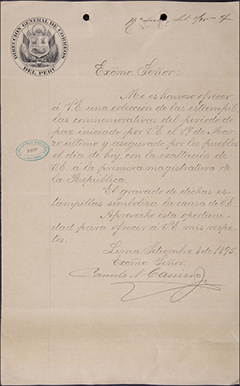 DIRECCIÓN GENERAL DE CORREOS
DEL PERÚ
Excmo Señor:
Me es honroso ofrecer
á V.E. una colección de las estampillas
conmemorativas del periodo de
paz iniciado por V.E. el 19 de Marzo
último y asegurado por los pueblos
el dia de hoy, con la exaltación de
V.E. á la primera magistratura de
la República.
El gravado de dichas estampillas
simboliza la causa de V.E.
Aprovecho esta oportunidad
para ofrecer á V.E. mis respetos.
Lima, Setiembre 8 de 1895.
Excmo Señor.